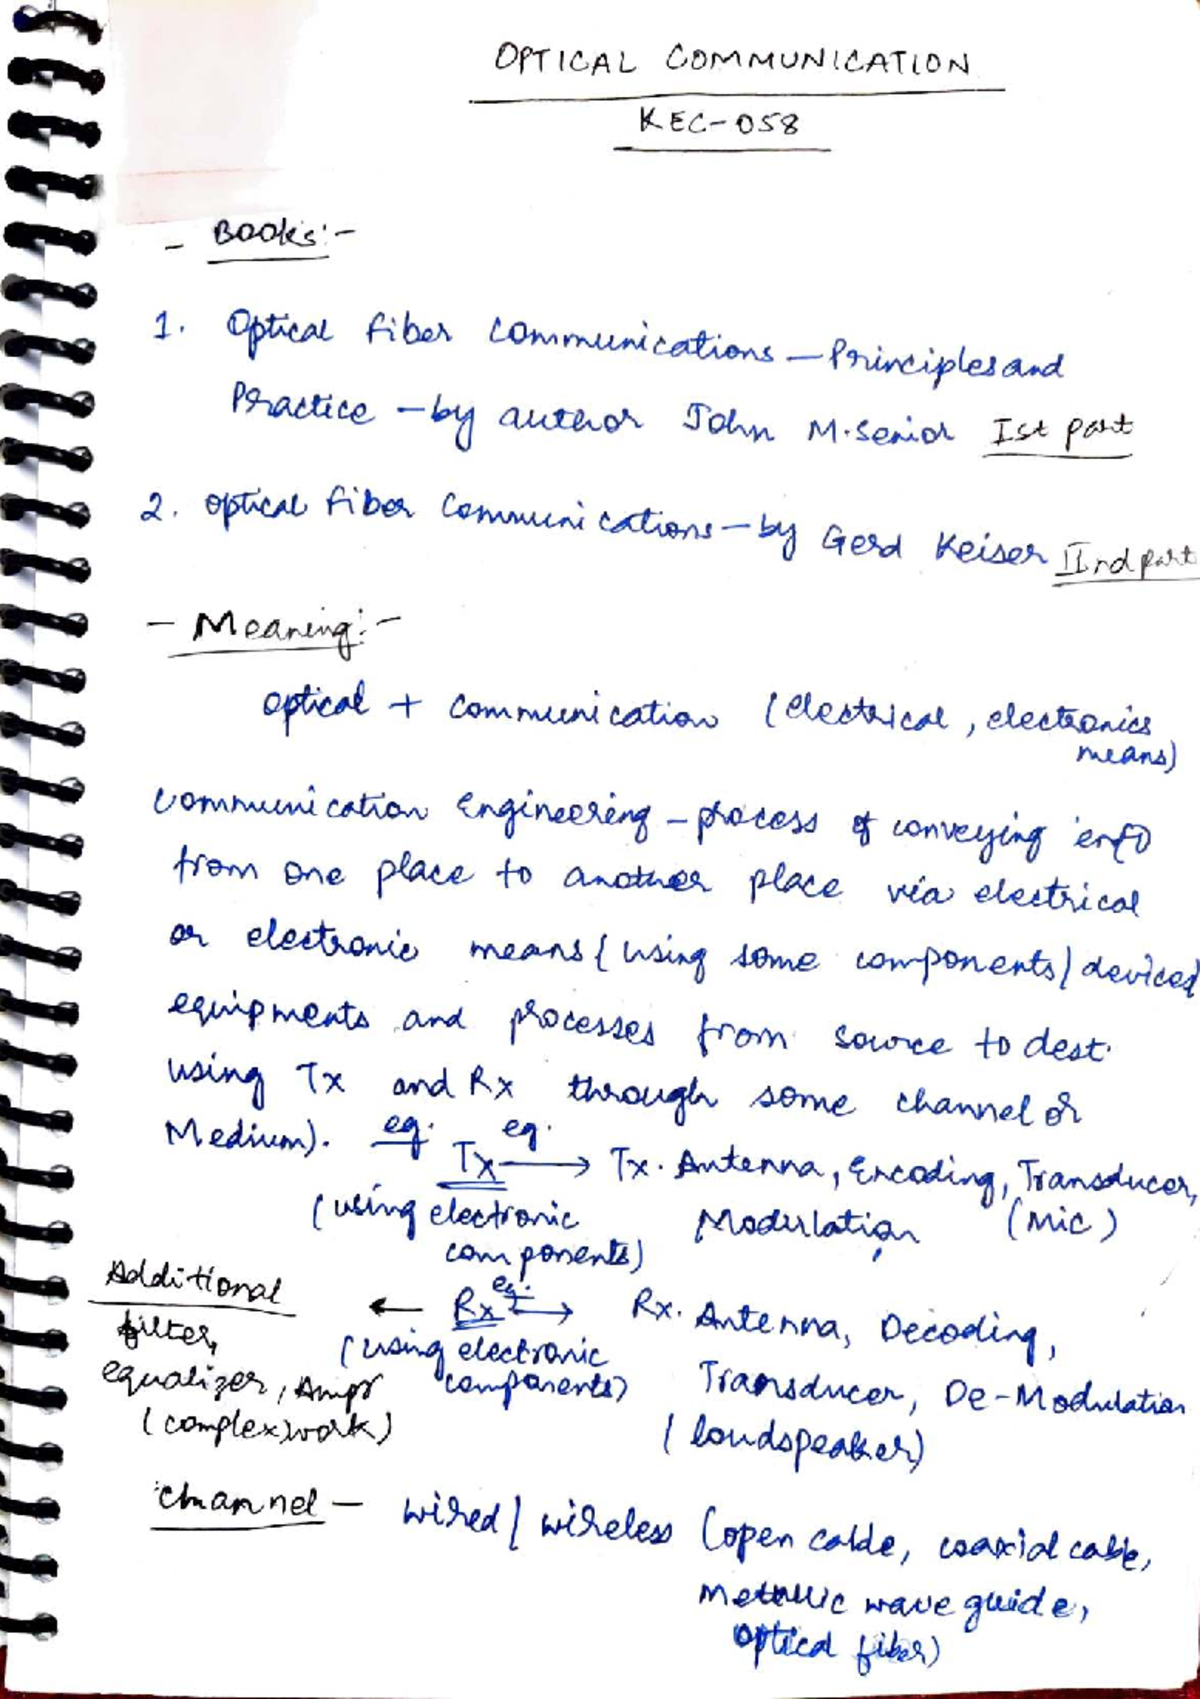 OPTICAL COMMUNICATION
KEC-058
- Books:-
1. Optical fiber communications - Principles and
Practice - by author John M. Senior Ist part
2. optical fiber communications - by Gerd Keiser IInd part
- Meaning:-
optical + communication (electrical, electronics
means)
communication Engineering - process of conveying info
from one place to another place via electrical
or electronic means (using some components/devices
equipments and processes from source to dest.
using Tx and Rx through some channel or
Medium). eg. eg.
Tx → Tx. Antenna, Encoding, Transducer,
(using electronic Modulation, (Mic)
components)
Additional ← Rx eg. → Rx. Antenna, Decoding,
filter, (using electronic
equalizer, Ampr components) Transducer, De-Modulation
(complex work) (loudspeaker)
channel - wired/wireless (open cable, coaxial cable,
Metallic wave guide,
optical fiber)